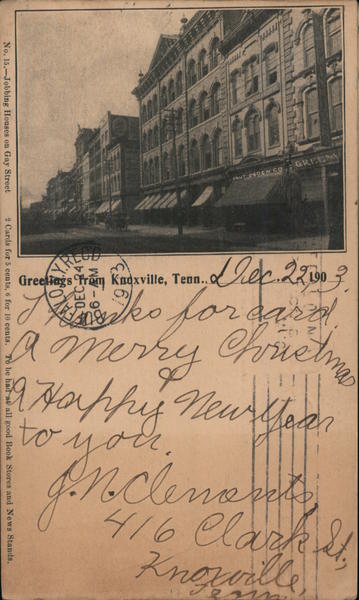 No. 15.—Jobbing Houses on Gay Street
2 Cards for 5 cents, 6 for 10 cents. To be had at all good Book Stores and News Stands.
Greetings from Knoxville, Tenn., Dec. 22, 1903.
BUFFALO, N.Y. REC'D
DEC 24
6-PM
1903
Thanks for card.
A Merry Christmas
&
A Happy New Year
to you.
J. N. Clements,
416 Clark St.,
Knoxville,
Tenn.